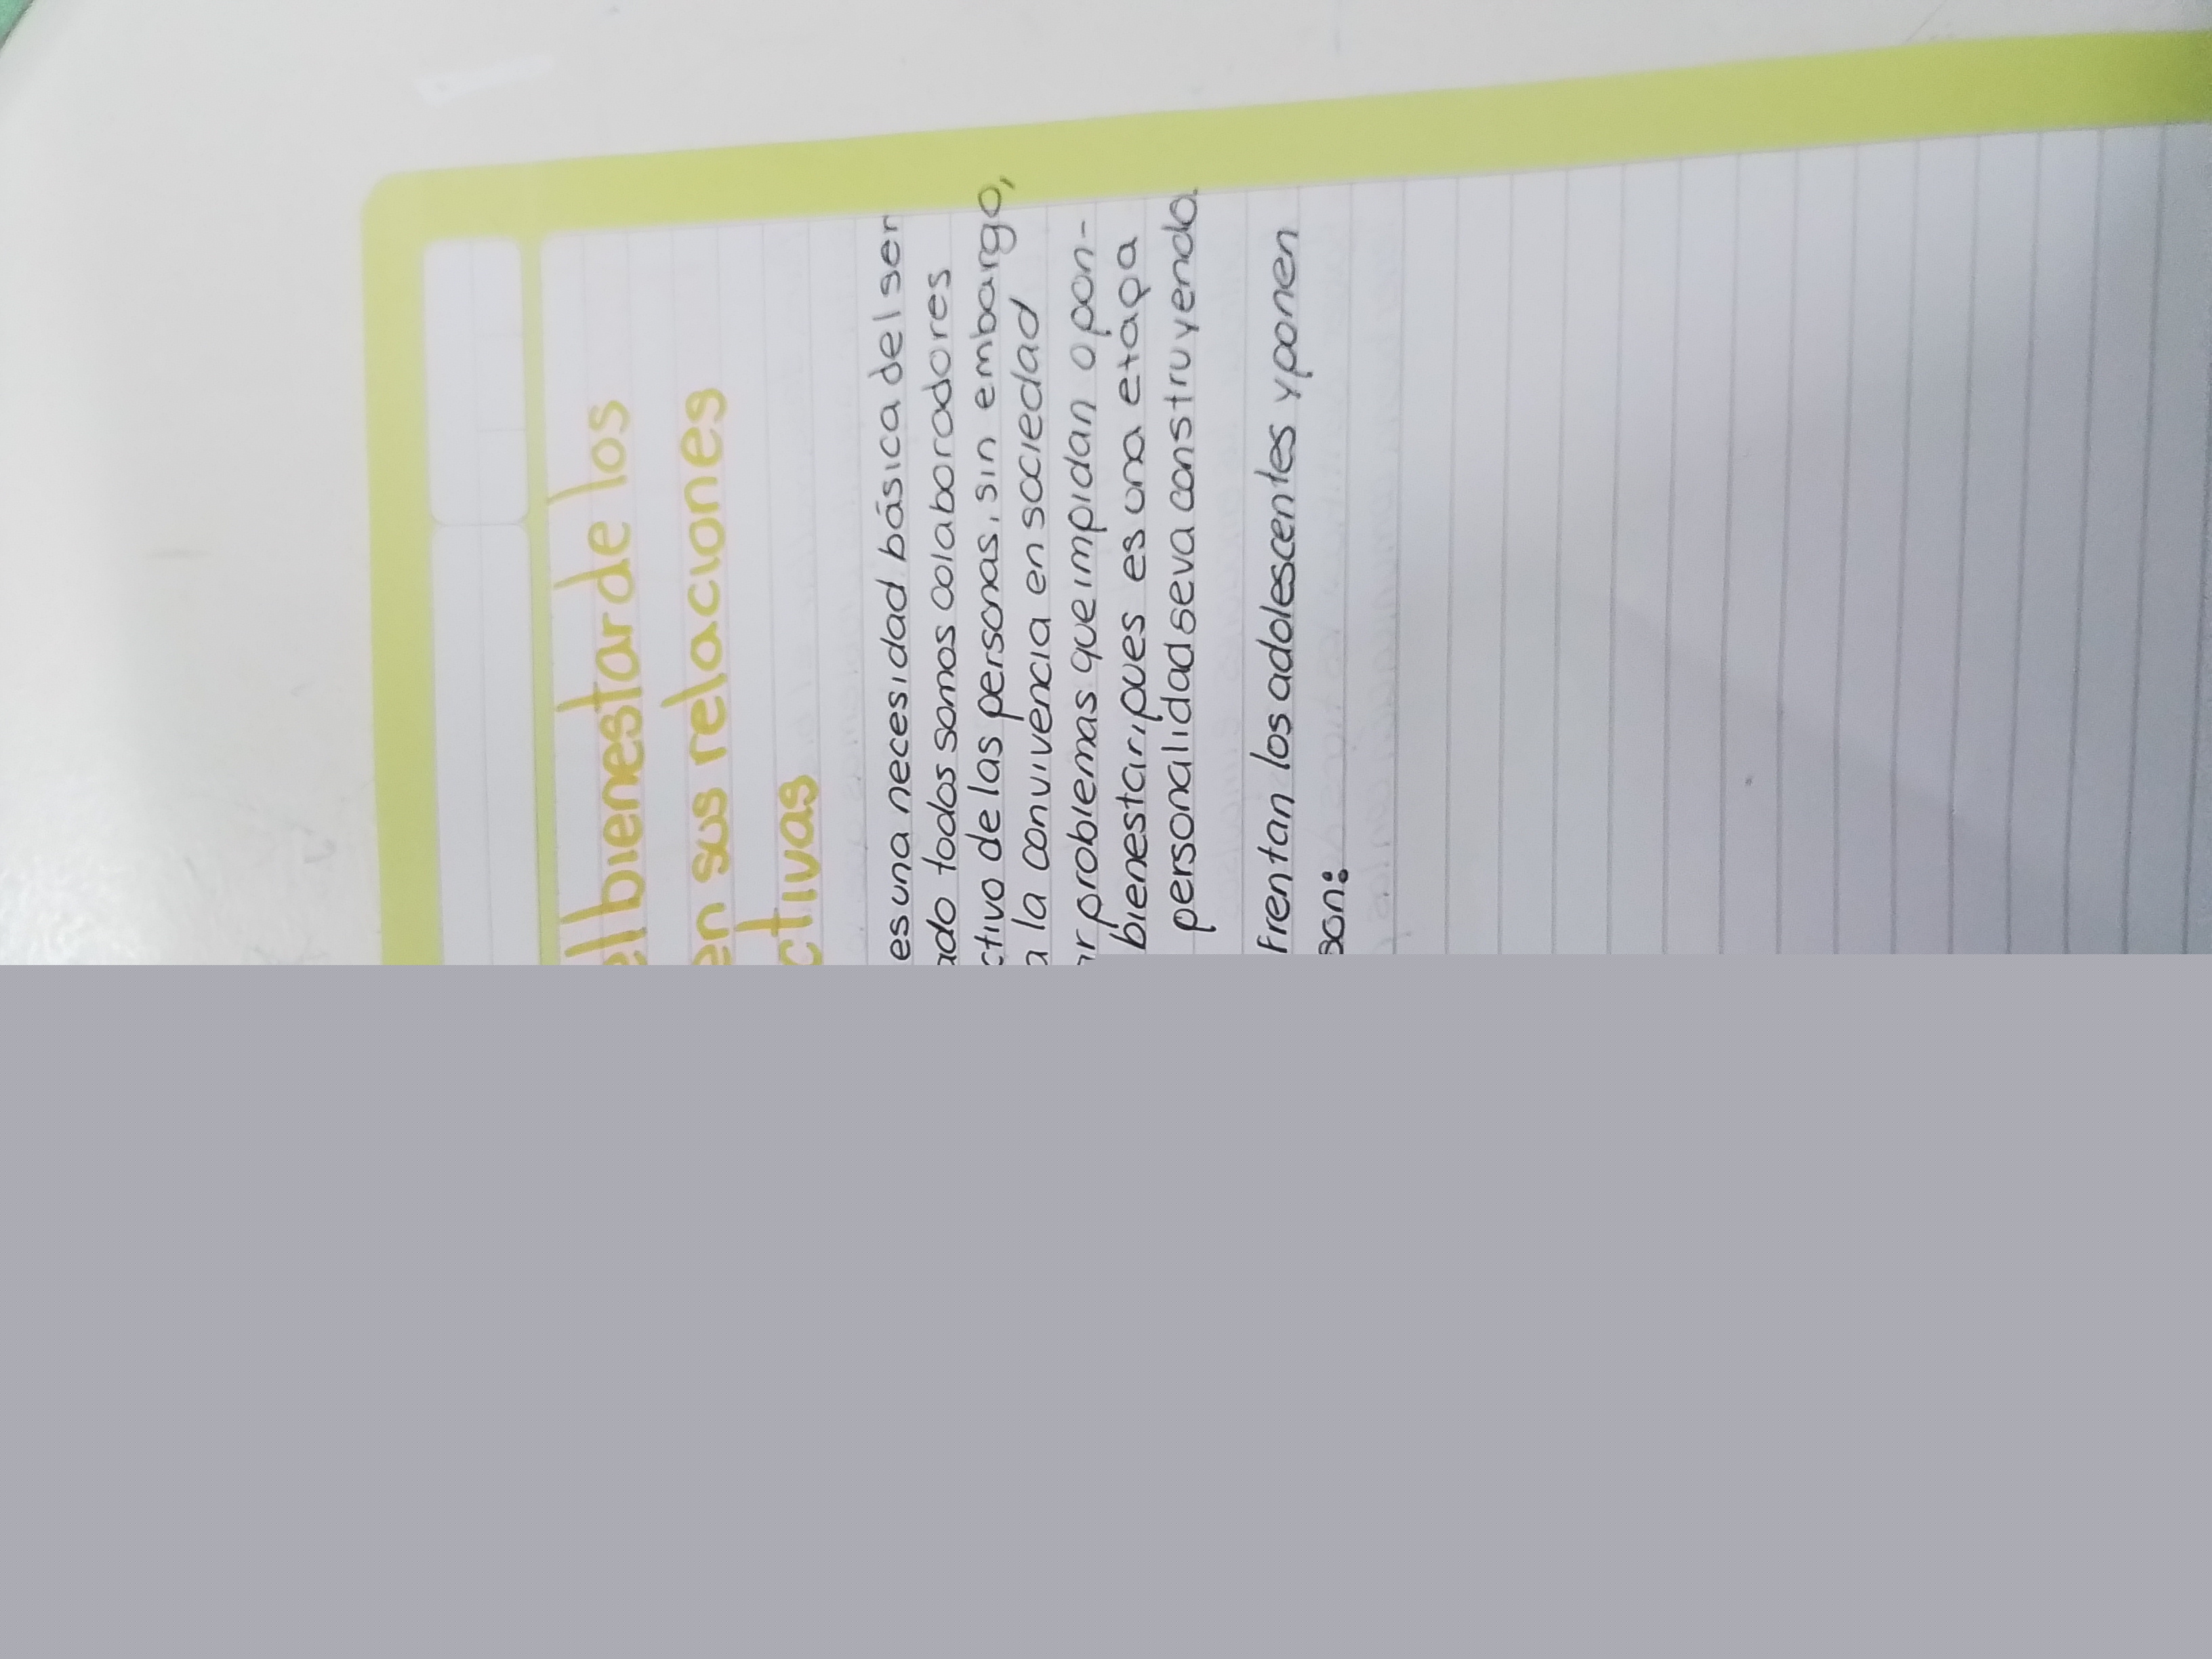 el bienestar de los
en sus relaciones
ctivas
es una necesidad básica del ser
ado todos somos colaboradores
ctivo de las personas, sin embargo,
a la convivencia en sociedad
r problemas que impidan o pon-
bienestar, pues es una etapa
personalidad se va construyendo.
frentan los adolescentes y ponen
son: